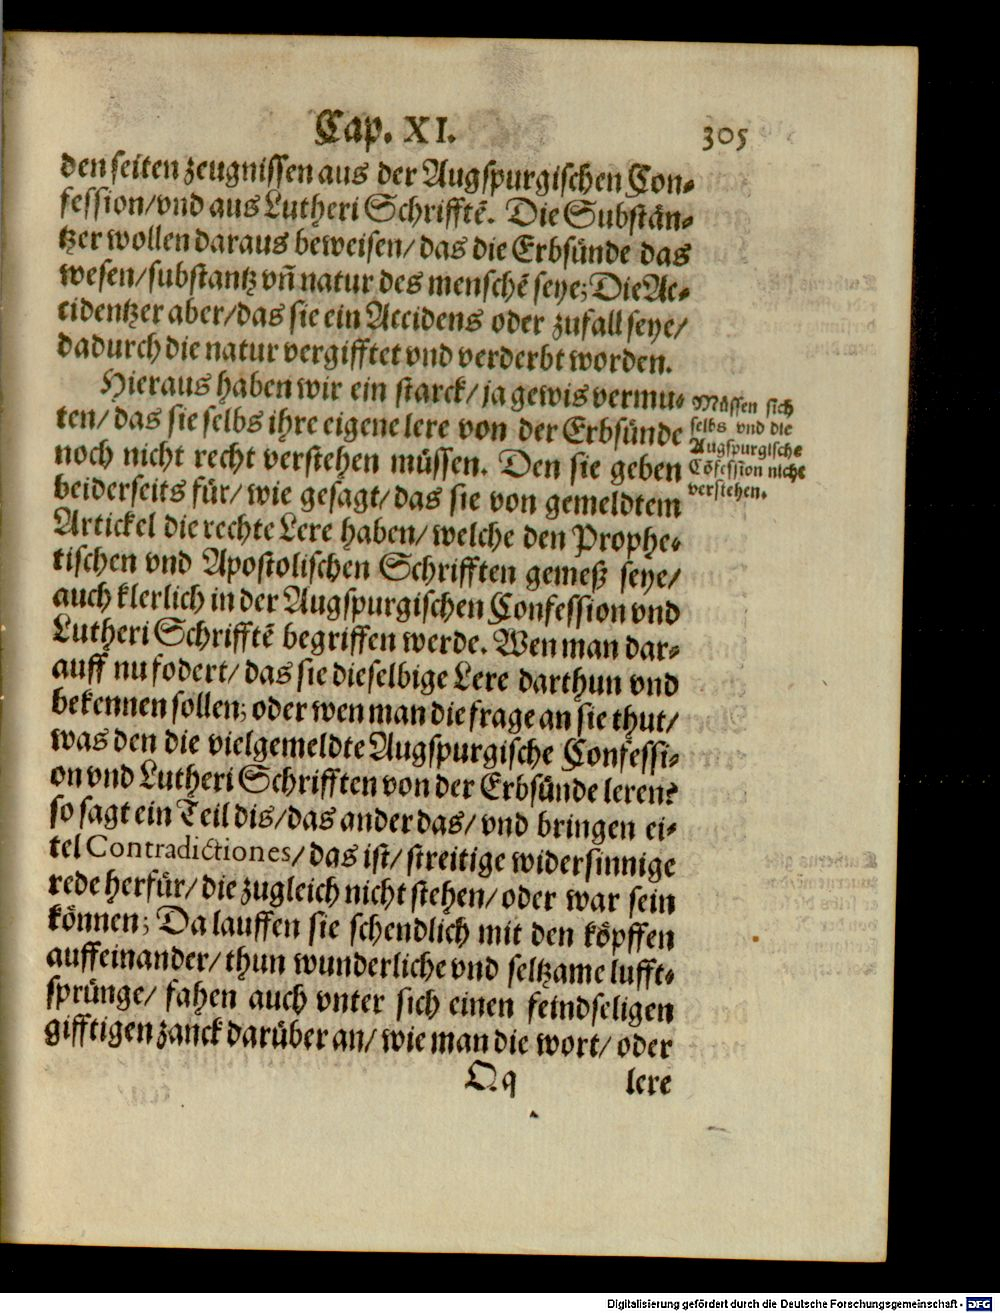 Cap. XI. 305
den seiten zeugnissen aus der Augspurgischen Con⸗
fession/vnd aus Lutheri Schrifftē. Die Substān⸗
tzer wollen daraus beweisen/das die Erbsünde das
wesen/substantz vñ natur des menschē seye; Die Ac⸗
tidentzer aber/das sie ein Accidens oder zufall seye/
dadurch die natur vergifftet vnd verderbt worden.
Hieraus haben wir ein starck/ja gewis vermu⸗
ten/das sie selbs ihre eigene lere von der Erbsünde
noch nicht recht verstehen müssen. Den sie geben
beiderseits für/wie gesagt/das sie von gemeldtem
Artickel die rechte Lere haben/welche den Prophe⸗
tischen vnd Apostolischen Schrifften gemeß seye/
auch klerlich in der Augspurgischen Confession vnd
Lutheri Schrifftē begriffen werde. Wen man dar⸗
auff nu fodert/das sie dieselbige Lere darthun vnd
bekennen sollen; oder wen man die frage an sie thut/
was den die vielgemeldte Augspurgische Confessi⸗
on vnd Lutheri Schrifften von der Erbsünde leren?
so sagt ein Teil dis/das ander das/vnd bringen ei⸗
tel Contradictiones/das ist/streitige widersinnige
rede herfür/die zugleich nicht stehen/oder war sein
können; Da lauffen sie schendlich mit den köpffen
auffeinander/thun wunderliche vnd seltzame lufft⸗
sprünge/fahen auch vnter sich einen feindseligen
gifftigen zanck darüber an/wie man die wort/oder
Qq lere
Müssen sich
selbs vnd die
Augspurgische
Cōfession nicht
verstehen.
Digitalisierung gefördert durch die Deutsche Forschungsgemeinschaft - DFG